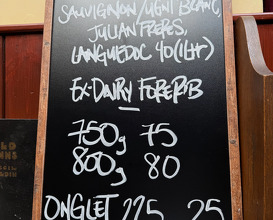 SAUVIGNON/UGNI BLANC,
JULIAN FRERES,
LANGUEDOC 40 (1LTR)
EX-DAIRY FORERIB
750g 75
800g 80
ONGLET 225 25